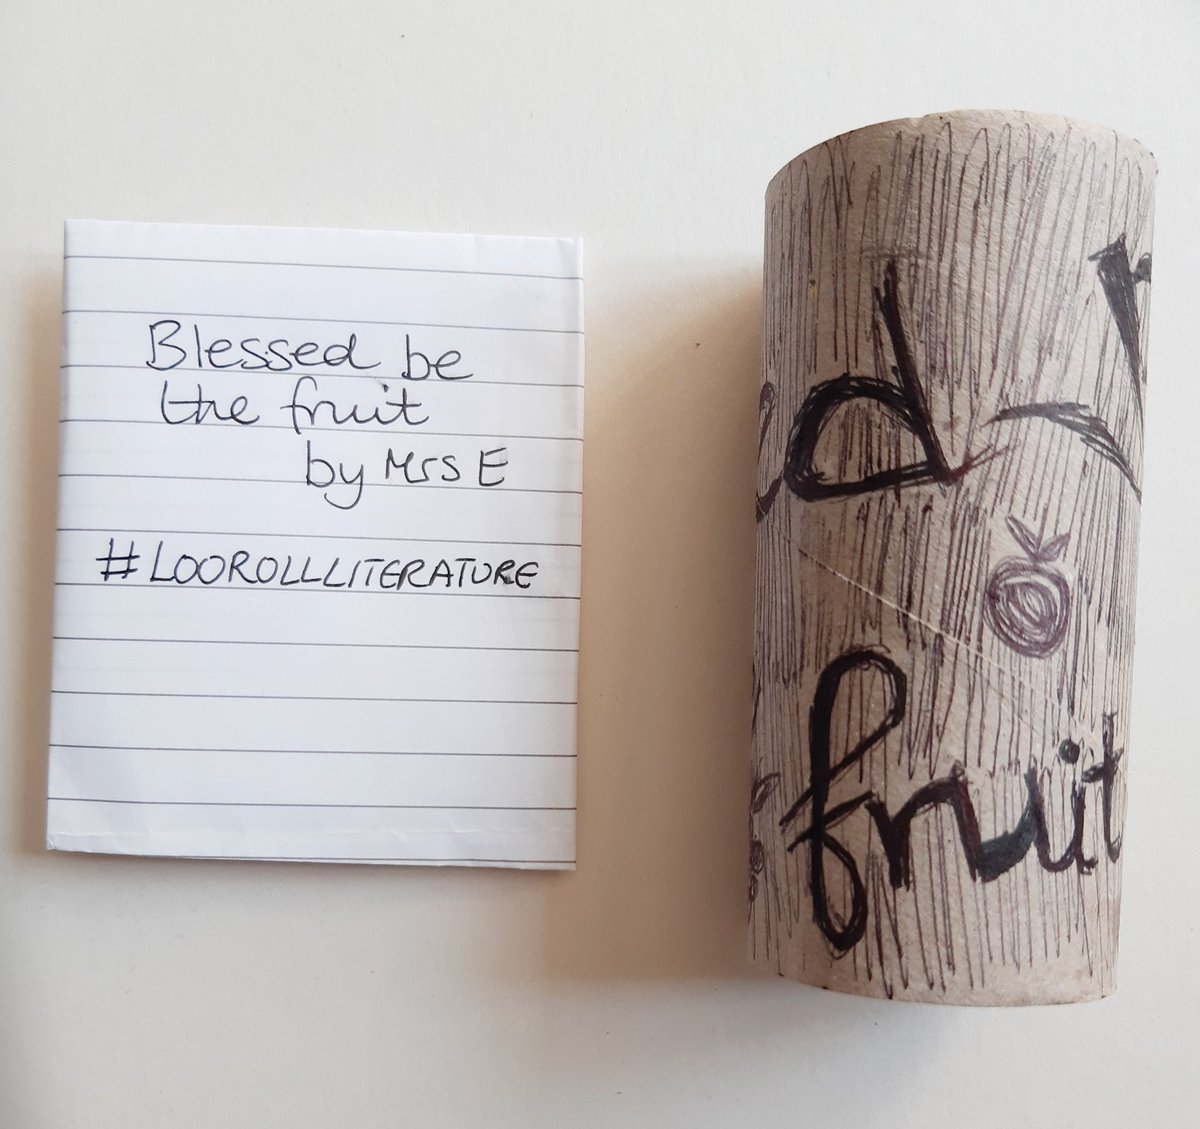 Blessed be
the fruit
by Mrs E
#LOOROLLLITERATURE
d
fruit